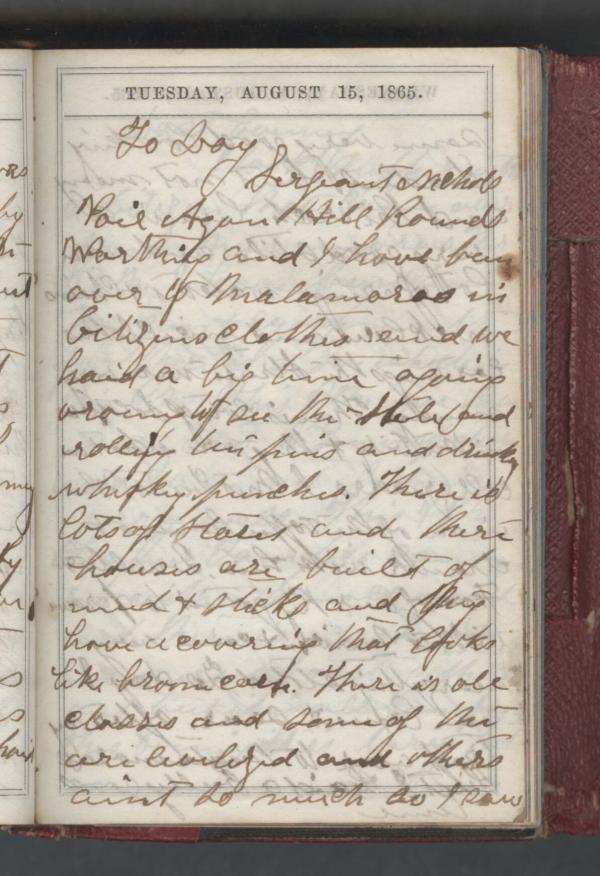 TUESDAY, AUGUST 15, 1865.
To Day
Sergeant Nichols
Hill Rounds
Worthing and I have ben
over to Matamoras in
Citizins clothes and we
haid a big time agoing
around to see the and
rolling tin pins and drinking
whisky punches. There is
lots of stores and there
houses are built of
mud & sticks and they
have a covering that looks
like broom corn. There is all
classes and some of the
are civilized and others
aint so much so I saw